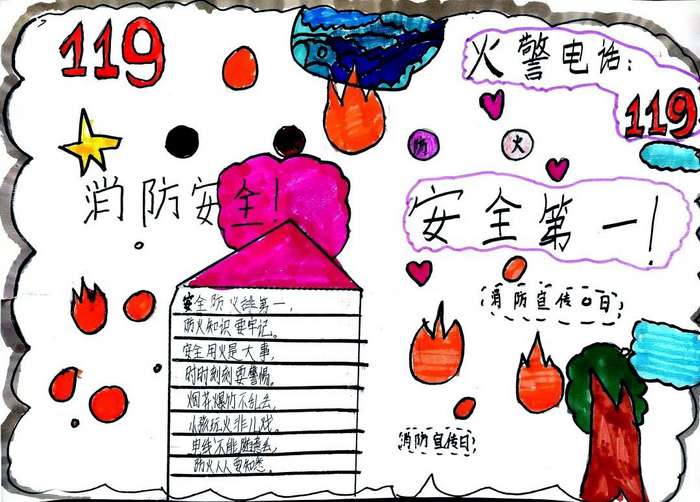 119
火警电话:
119
防 火
消防安全!
安全第一!
消防宣传日
安全防火排第一,
防火知识要牢记。
安全用火是大事,
时时刻刻要警惕。
烟花爆竹不乱丢,
小孩玩火非儿戏。
电线不能随意丢,
防火人人要知悉。
消防宣传日